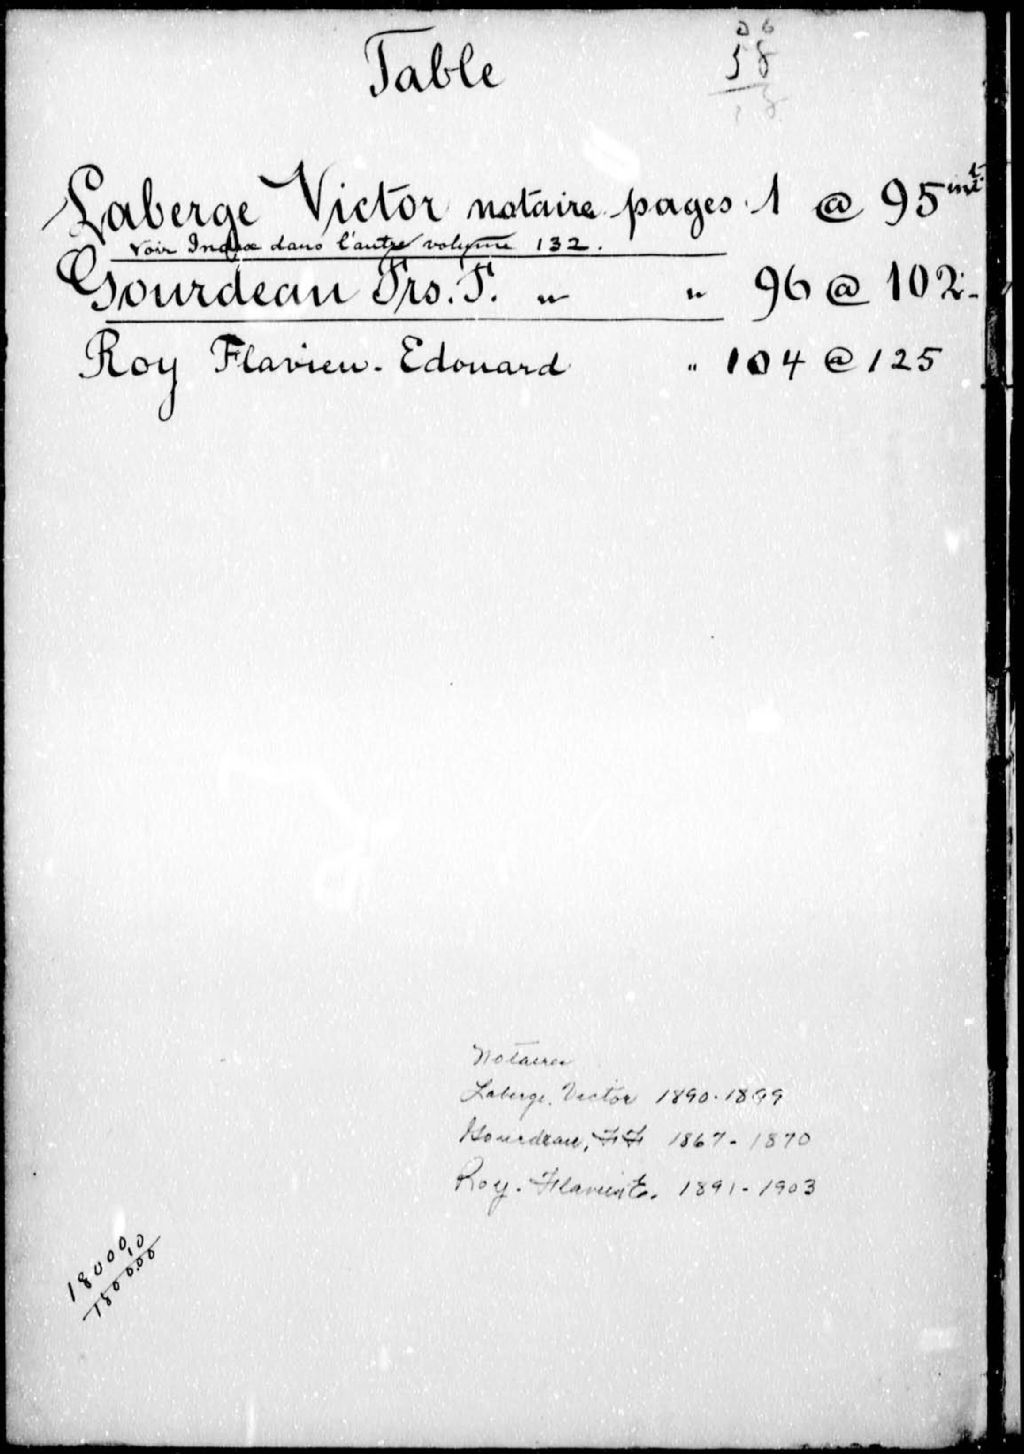 Table
58
18
Laberge Victor notaire pages 1 @ 95 inct.
Voir Index dans l'autre volume 132.
Gourdeau Frs. F. " " 96 @ 102.
Roy Flavien-Edouard " 104 @ 125
Notaires
Laberge, Victor 1890-1899
Gourdeau, FF 1867-1870
Roy. Flavien E. 1891-1903
18000,10
1800.00